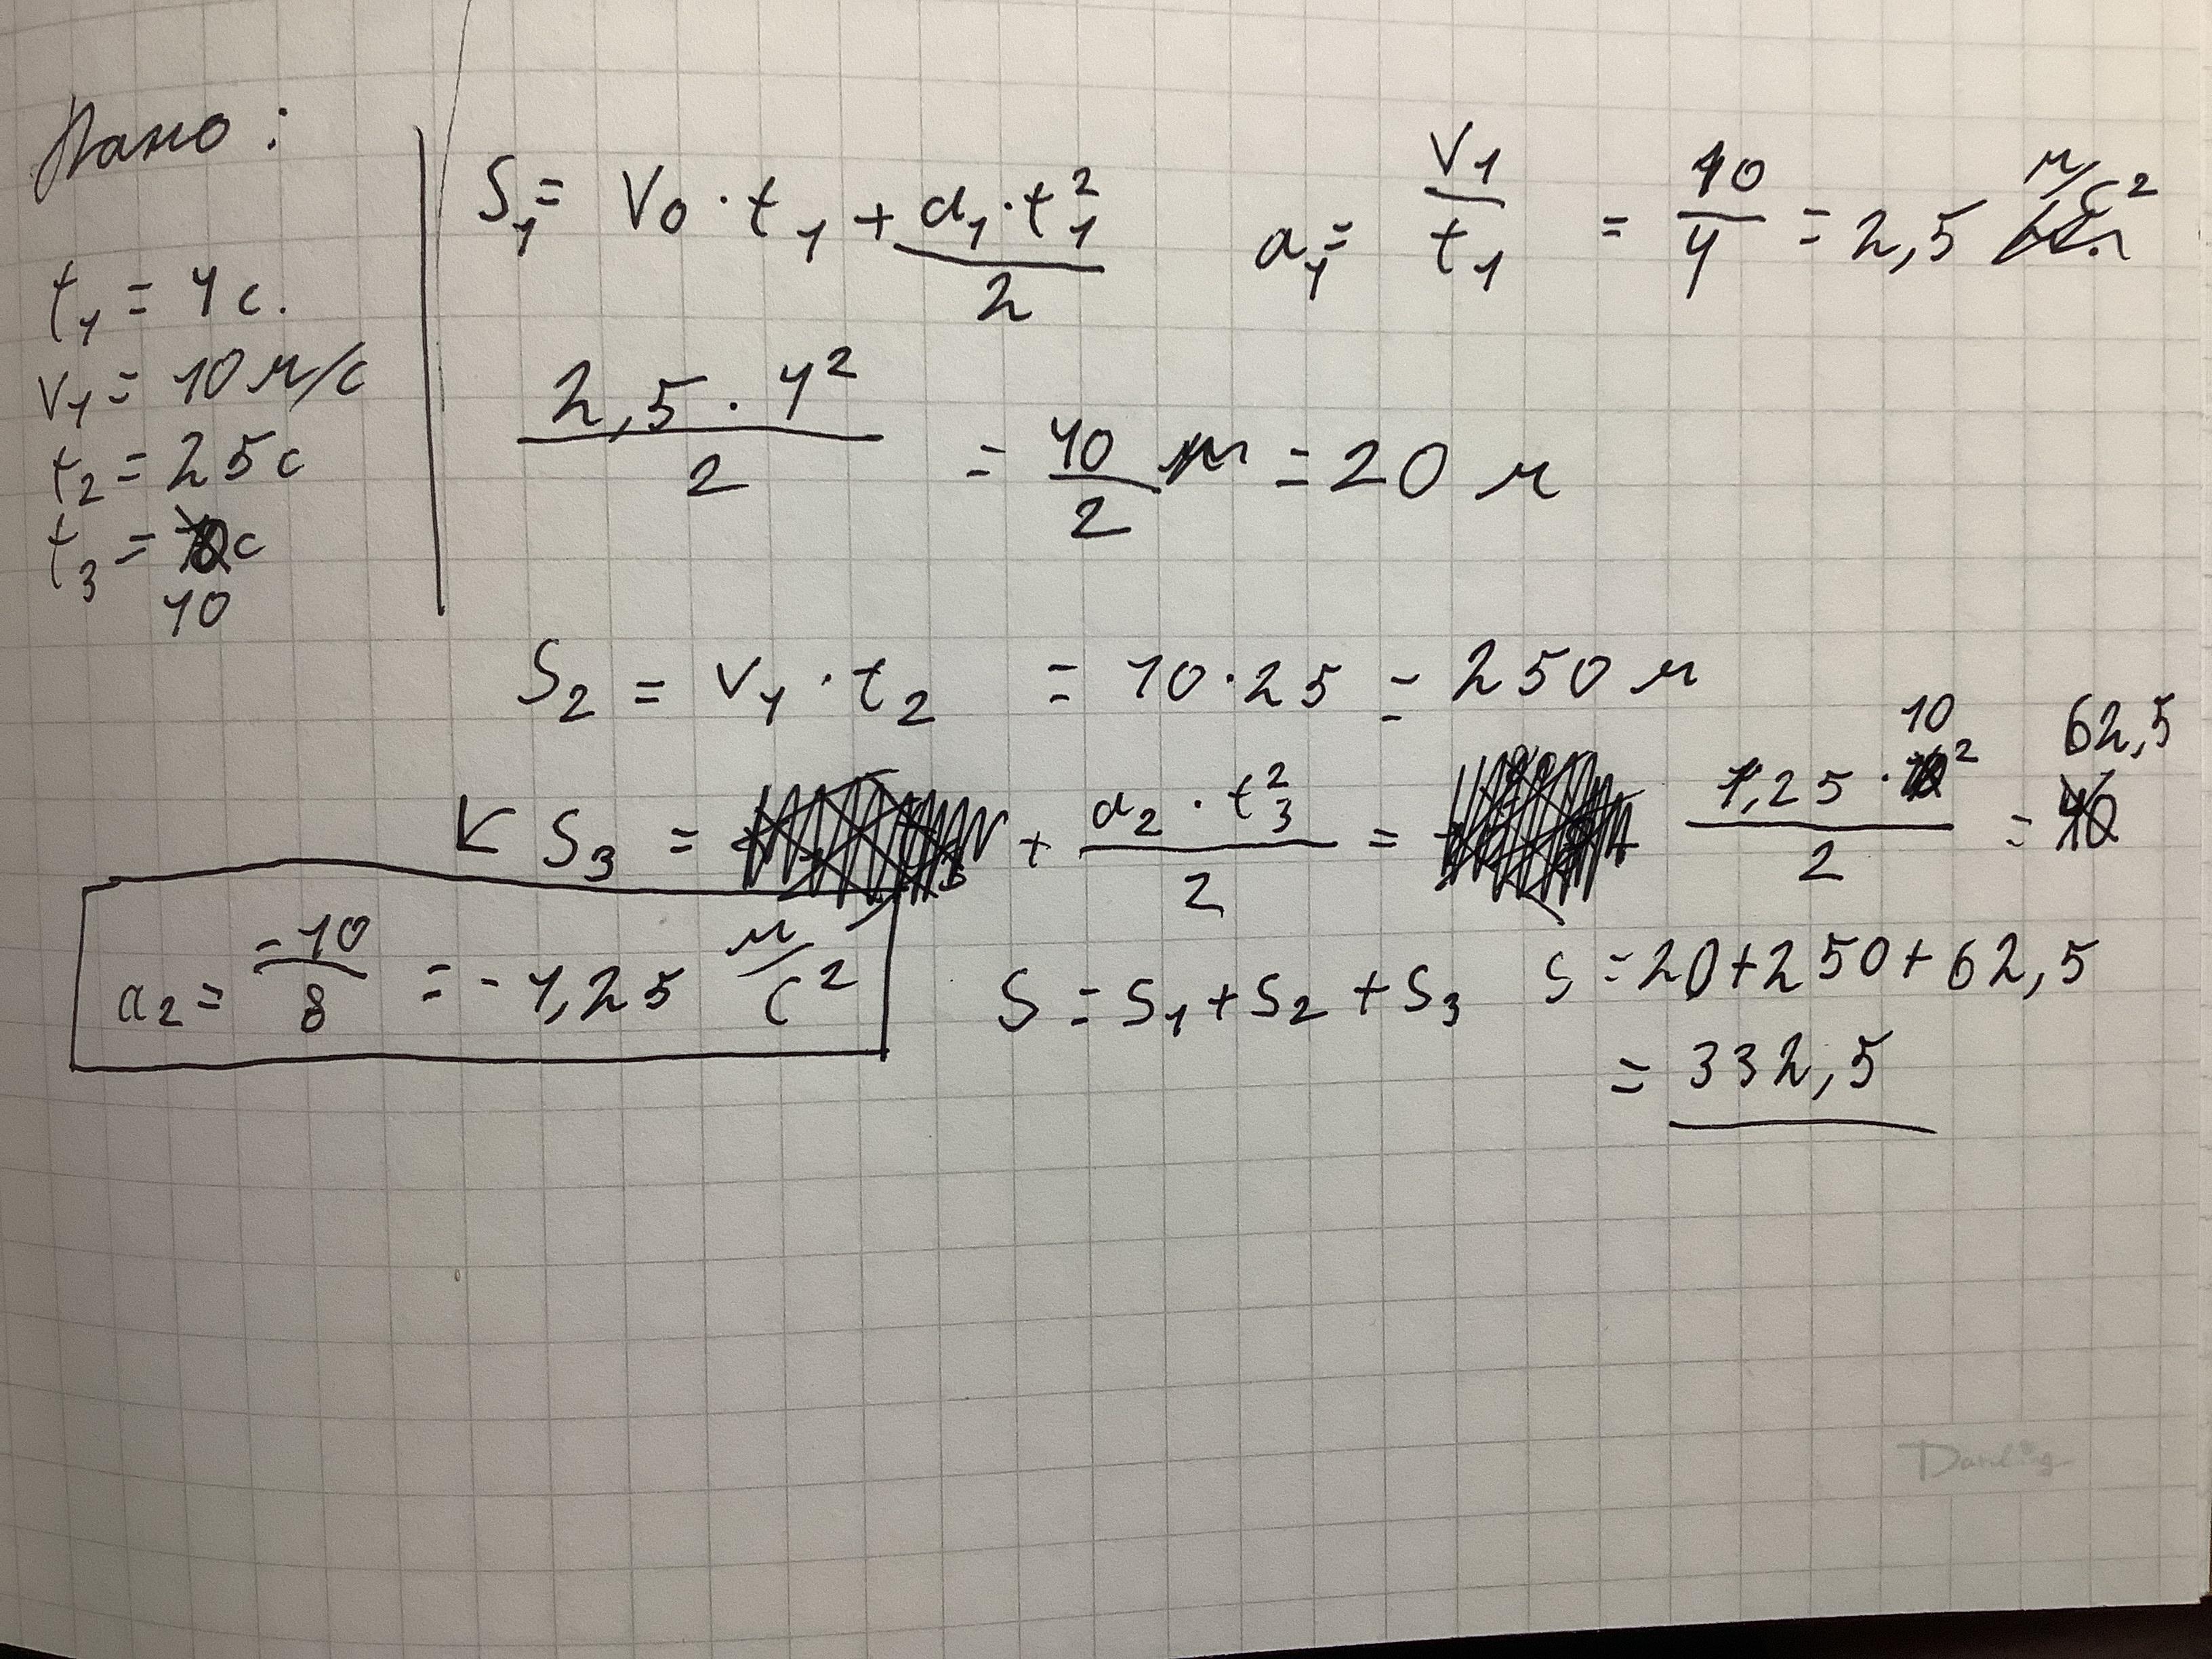 Дано:
t₁ = 4 с.
v₁ = 10 м/с
t₂ = 25 с
t₃ = с
10
S₁ = V₀ · t₁ + a₁ · t₁² / 2
a₁ = V₁ / t₁ = 10 / 4 = 2,5 м/с²
2,5 · 4² / 2 = 40 / 2 = 20 м
S₂ = V₁ · t₂ = 10 · 25 = 250 м
S₃ = + a₂ · t₃² / 2 = 1,25 · 10² / 2 = 62,5
a₂ = -10 / 8 = -1,25 м/с²
S = S₁ + S₂ + S₃
S = 20 + 250 + 62,5
= 332,5
Darling